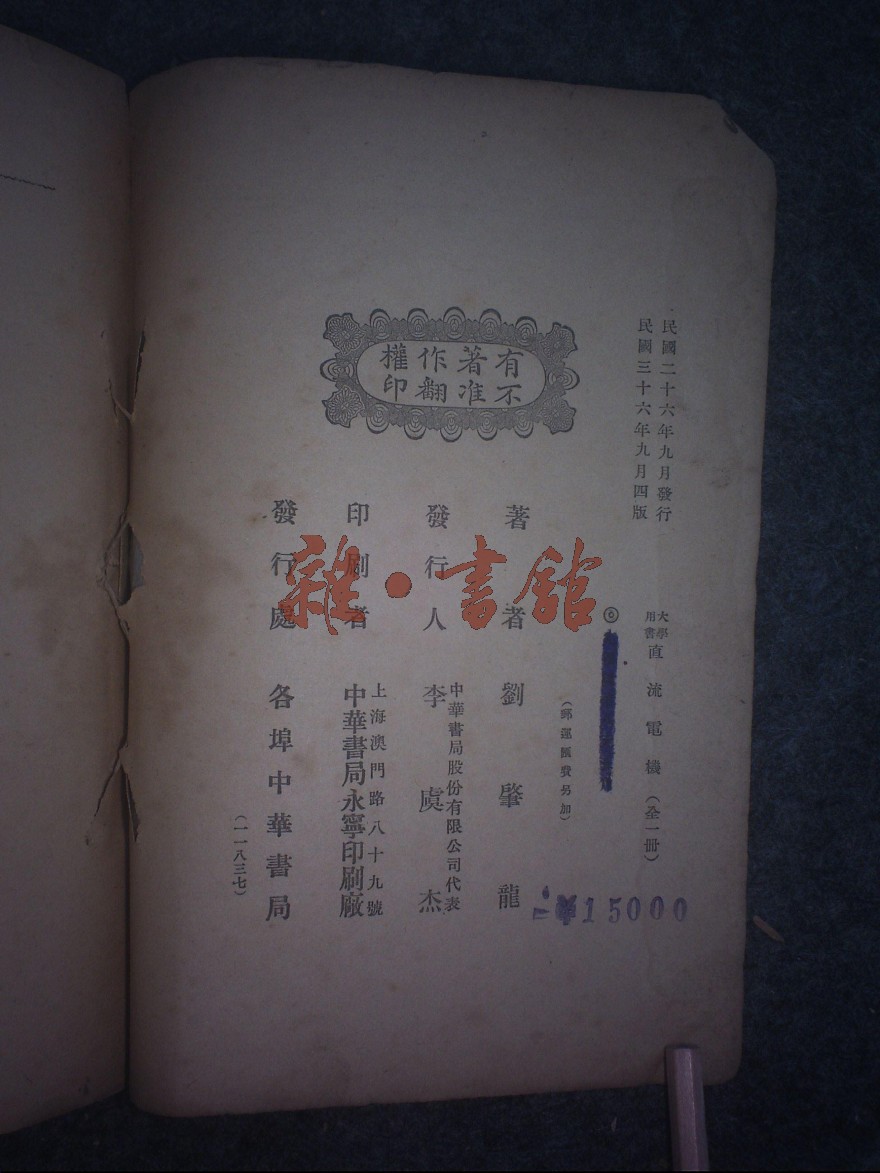 民國二十六年九月發行
民國三十六年九月四版
大學用書 直流電機（全一冊）
◎
（郵運匯費另加）
¥15000
有不著准作翻權印
著者 劉肇龍
中華書局股份有限公司代表
發行人 李虞杰
上海澳門路八十九號
印刷者 中華書局永寧印刷廠
發行處 各埠中華書局
（一一八三七）
雜·書館